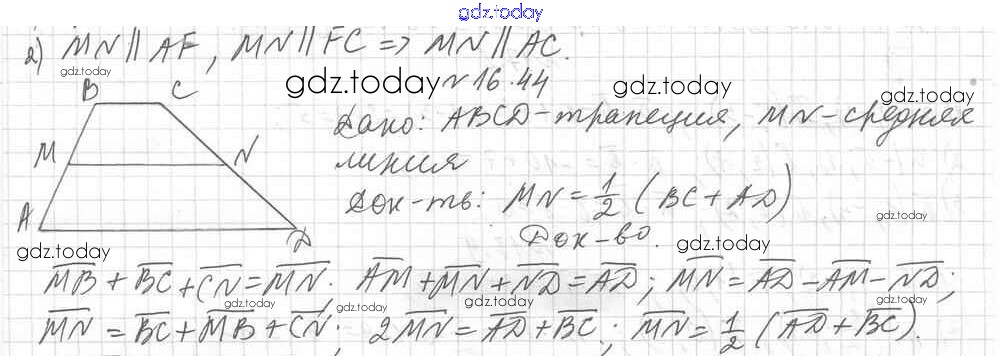 gdz.today
2) MN ∥ AF, MN ∥ FC => MN ∥ AC.
gdz.today
gdz.today
№ 16.44
gdz.today
B C
Дано: ABCD - трапеция, MN - средняя
M N
линия
Док-ть: MN = 1/2 (BC + AD)
gdz.today
A D
Док-во.
gdz.today
gdz.today
M̅B̅ + B̅C̅ + C̅N̅ = M̅N̅. A̅M̅ + M̅N̅ + N̅D̅ = A̅D̅; M̅N̅ = A̅D̅ - A̅M̅ - N̅D̅;
gdz.today gdz.today gdz.today gdz.today
M̅N̅ = B̅C̅ + M̅B̅ + C̅N̅; 2M̅N̅ = A̅D̅ + B̅C̅; M̅N̅ = 1/2 (A̅D̅ + B̅C̅).